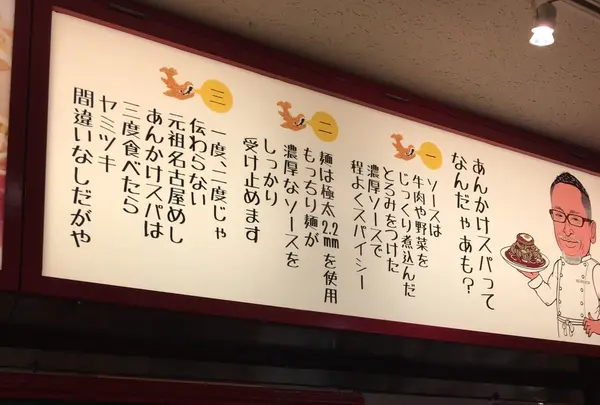 あんかけスパって
なんだゃあも?
一
ソースは
牛肉や野菜を
じっくり煮込んだ
とろみをつけた
濃厚ソースで
程よくスパイシー
二
麺は極太2.2mmを使用
もっちり麺が
濃厚なソースを
しっかり
受け止めます
三
一度、二度じゃ
伝わらない
元祖名古屋めし
あんかけスパは
三度食べたら
ヤミツキ
間違いなしだがや